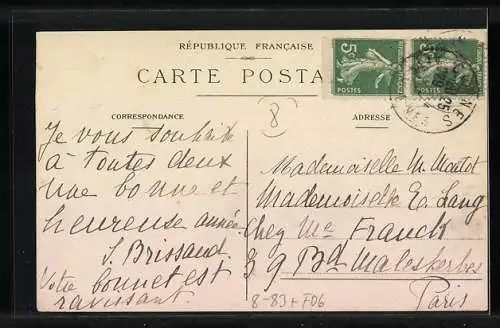 RÉPUBLIQUE FRANÇAISE
CARTE POSTA
5c
POSTES
POSTES
8
CORRESPONDANCE
ADRESSE
Je vous souhaite
à toutes deux
une bonne et
heureuse année.
S. Brissaud
Votre bonnet est
ravissant.
Mademoiselle M. Matot
Mademoiselle E. Lang
Chez Me Franck
39 Bd Malesherbes
Paris
8-83 + F06